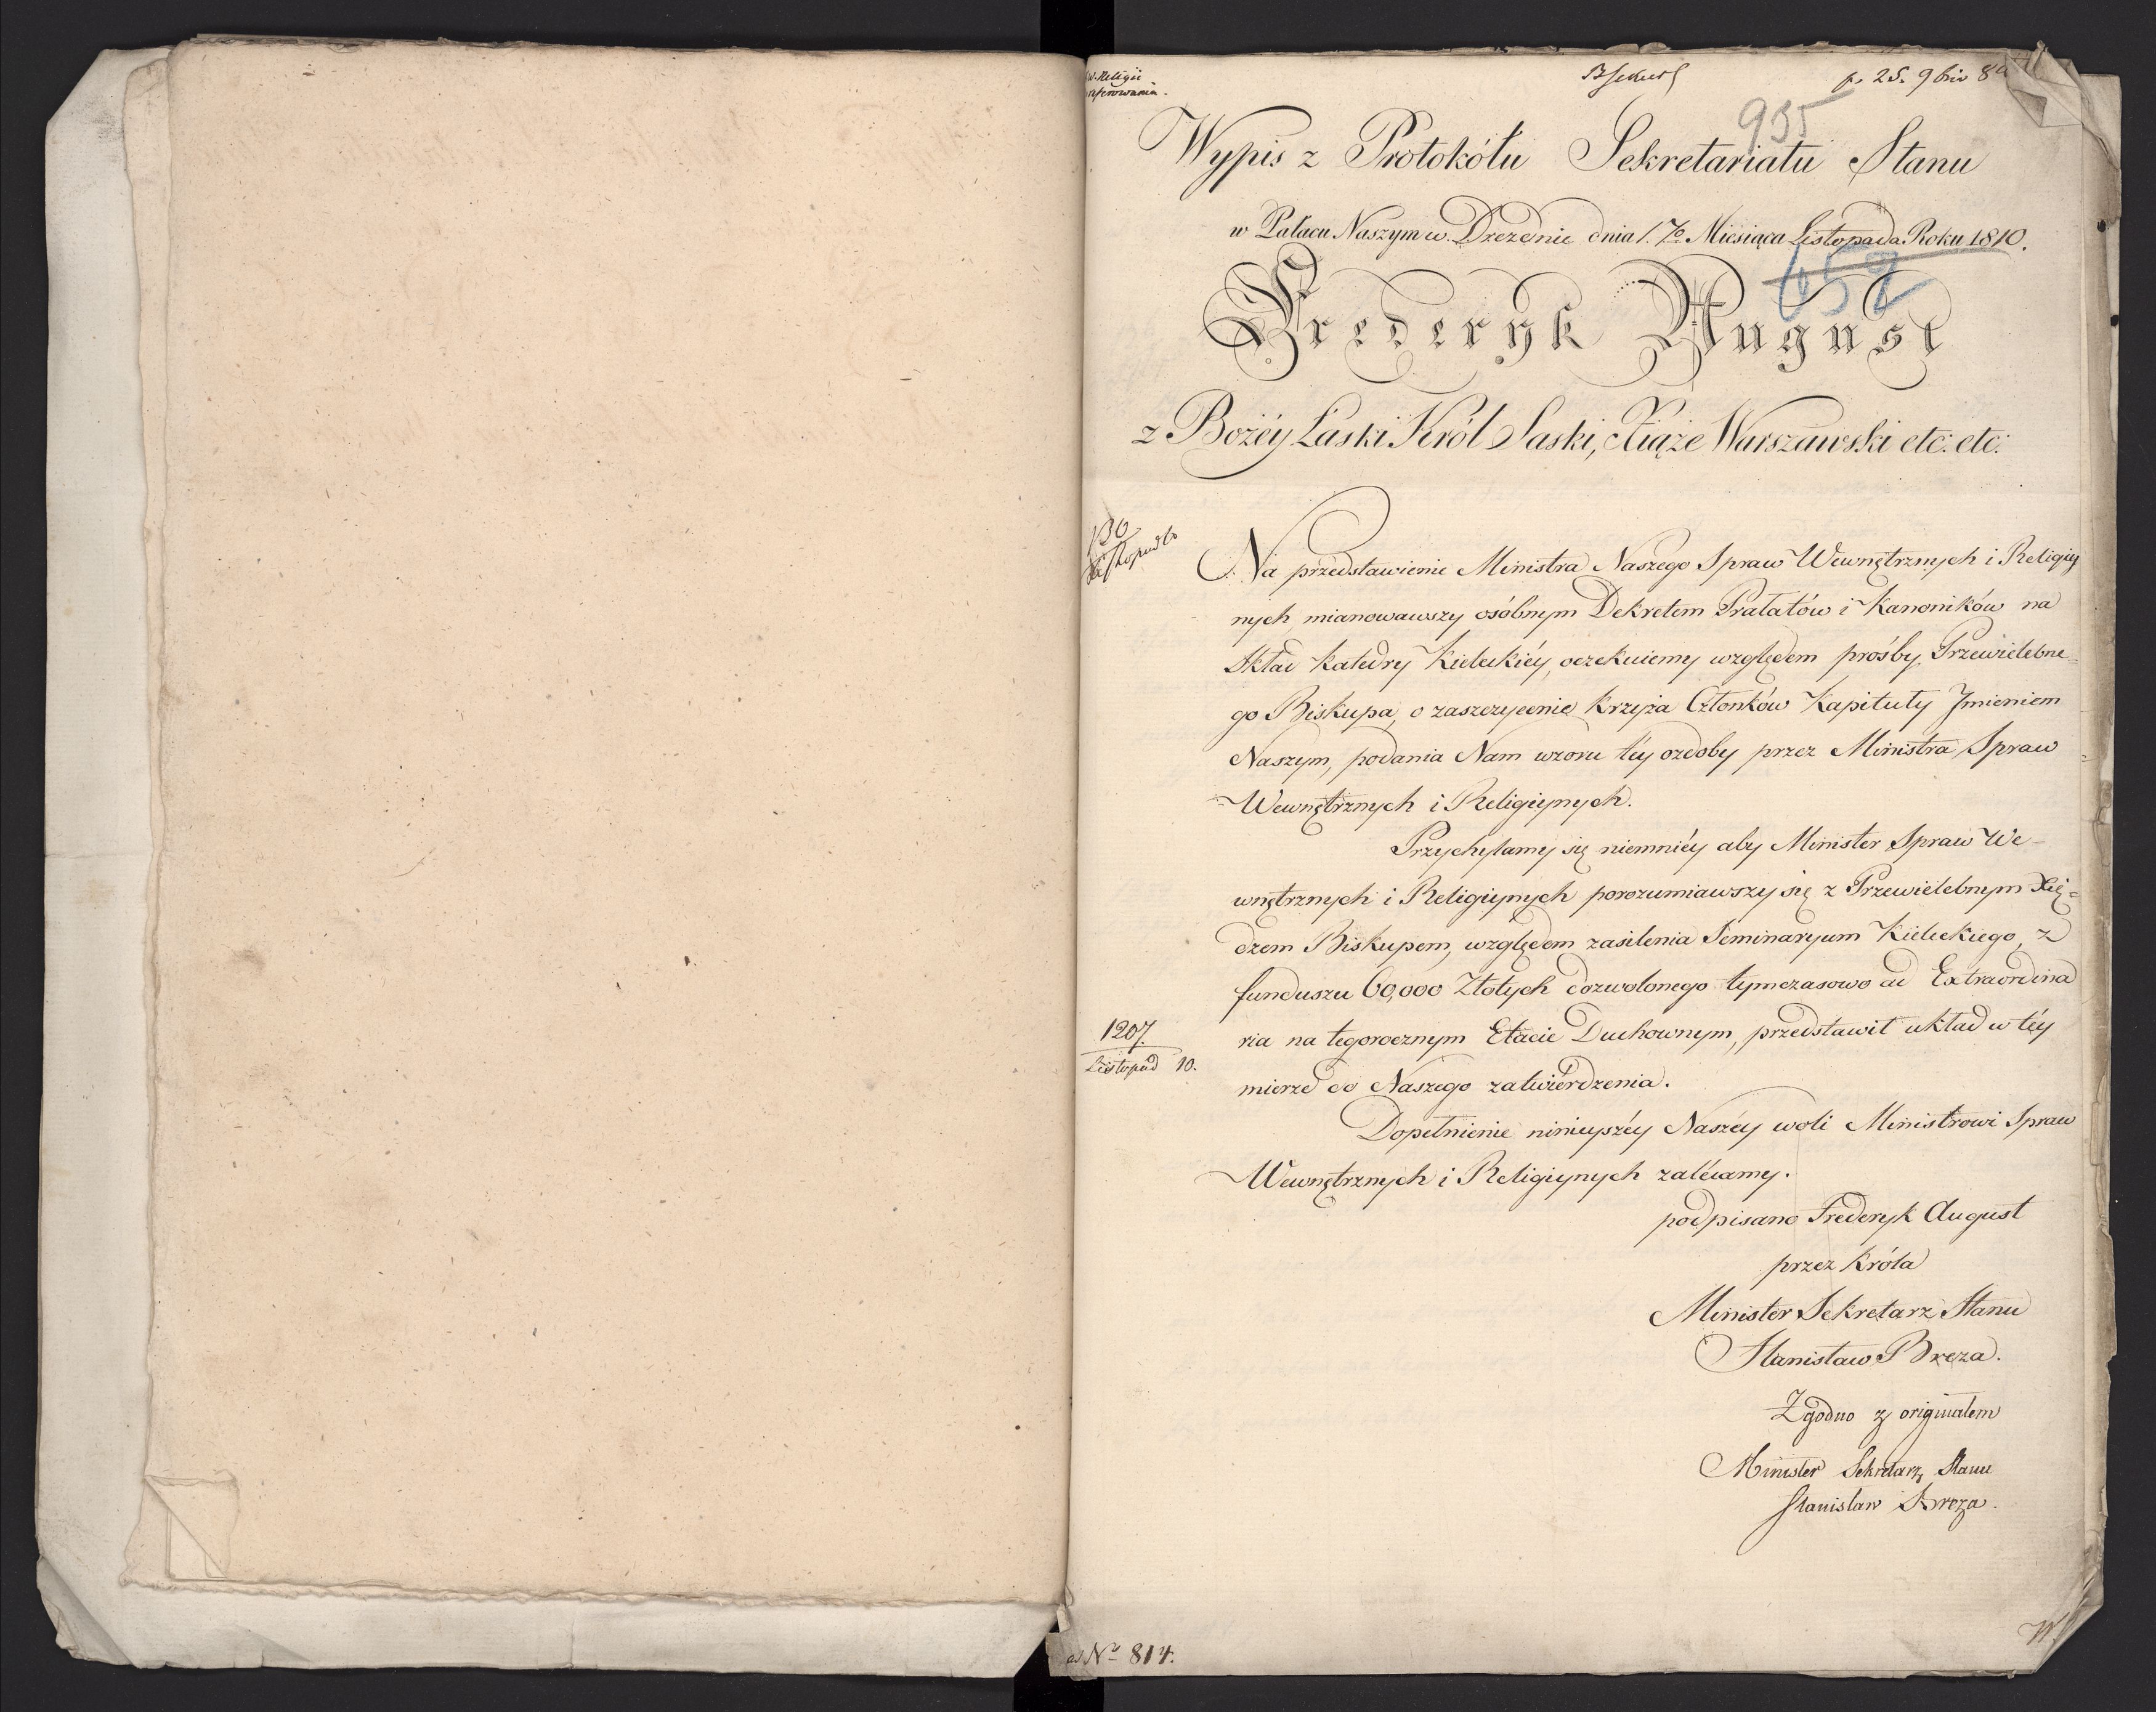 p. 25. 9bris
935
Wypis z Protokółu Sekretariatu Stanu
w Pałacu Naszym w Dreznie dnia 1. 7o Miesiąca Listopada Roku 1810.
652
Frederyk August
z Bożéy Łaski Król Saski, Xiąże Warszawski etc: etc:
130
Na przedstawienie Ministra Naszego Spraw Wewnętrznych i Religiy
nych mianowawszy osóbnym Dekretem Prałatów i Kanoników na
skład Katedry Kieleckiéy, oczekuiemy względem prośby, Przewielebne=
go Biskupa, o zaszczycenie krzyża Członków Kapituły Jmieniem
Naszym, podania Nam wzoru téy ozdoby przez Ministra Spraw
Wewnętrznych i Religiynych.
Przychylamy się niemniéy aby Minister Spraw We-
wnętrznych i Religiynych porozumiawszy się z Przewielebnym Xię=
dzem Biskupem, względem zasilenia Seminaryum Kieleckiego, z
funduszu 60,000 Złotych dozwolonego tymczasowo ad Extraordina
ria na tegorocznym Etacie Duchownym, przedstawił układ w téy
1207.
Listopad 10.
mierze do Naszego zatwierdzenia.
Dopełnienie ninieyszéy Naszéy woli Ministrowi Spraw
Wewnętrznych i Religiynych zalécamy.
podpisano Frederyk August
przez Króla
Minister Sekretarz Stanu
Stanisław Breza.
Zgodno z originałem
Minister Sekretarz Stanu
Stanisław Breza.
ad No 814.